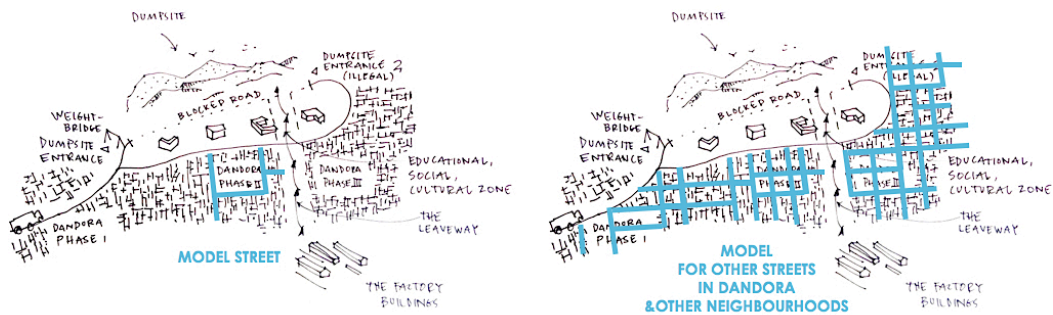 DUMPSITE
DUMPSITE
ENTRANCE 2
(ILLEGAL)
BLOCKED ROAD
WEIGHT-
BRIDGE
DUMPSITE
ENTRANCE
DANDORA
PHASE II
DANDORA
PHASE III
EDUCATIONAL,
SOCIAL,
CULTURAL ZONE
DANDORA
PHASE 1
THE
LEAVEWAY
MODEL STREET
THE FACTORY
BUILDINGS
DUMPSITE
DUMPSITE
ENTRANCE 2
(ILLEGAL)
BLOCKED ROAD
WEIGHT-
BRIDGE
DUMPSITE
ENTRANCE
DANDORA
PHASE II
PHASE III
EDUCATIONAL,
SOCIAL,
CULTURAL ZONE
DANDORA
PHASE 1
THE
LEAVEWAY
MODEL
FOR OTHER STREETS
IN DANDORA
&OTHER NEIGHBOURHOODS
THE FACTORY
BUILDINGS